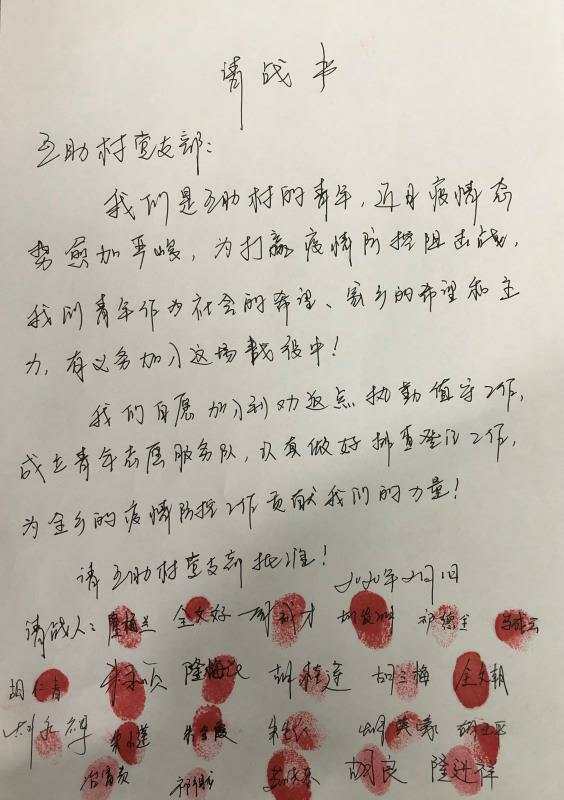 请战书
互助村党支部:
我们是互助村的青年,近日疫情态
势愈加严峻,为打赢疫情防控阻击战,
我们青年作为社会的希望、家乡的希望和主
力,有义务加入这场战役中!
我们自愿加入到劝返点执勤值守工作,
成立青年志愿服务队,认真做好排查登记工作,
为全乡的疫情防控工作贡献我们的力量!
请互助村党支部批准!
2020年2月1日
请战人: 全文好
胡仁青 隆梅 胡 莲 胡兰梅 全文朝
胡良 隆进祥